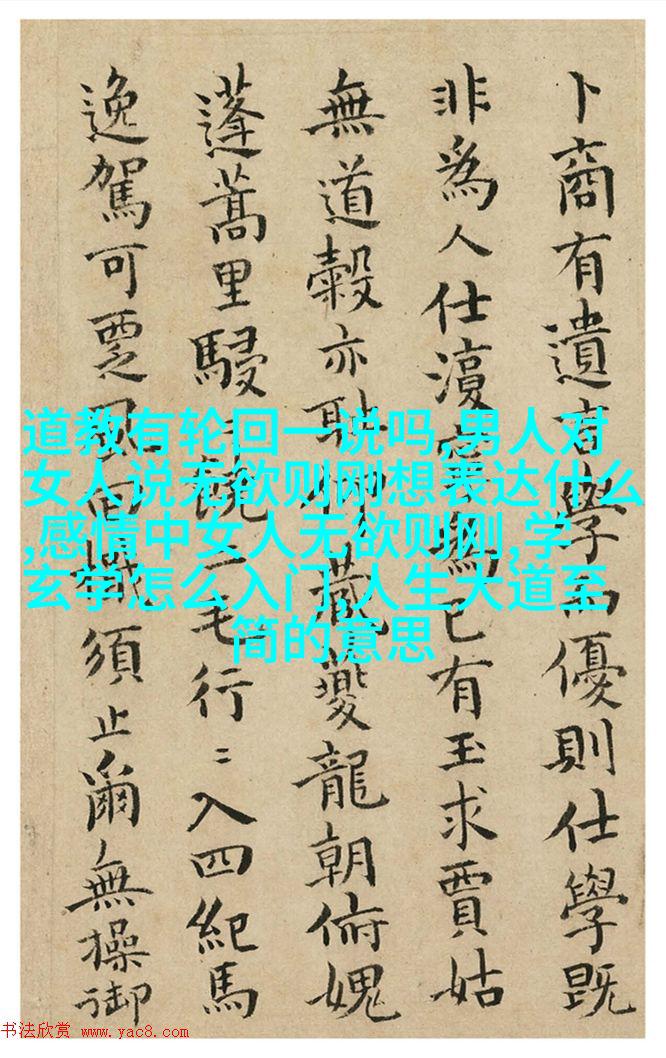 卜商有遺言學而優則仕學既
非為人仕須寧為己有玉求賈姑
無道穀亦恥仰藏夔龍朝俯媿
蓬蒿里駸駸二毛行〻入四紀馬
逸駕可覂風白幟須止爾無操御
道教有轮回一说吗,男人对
女人说无欲则刚想表达什么
,感情中女人无欲则刚,学
玄学怎么入门,人生大道至
简的意思
书法欣赏 www.yac8.com